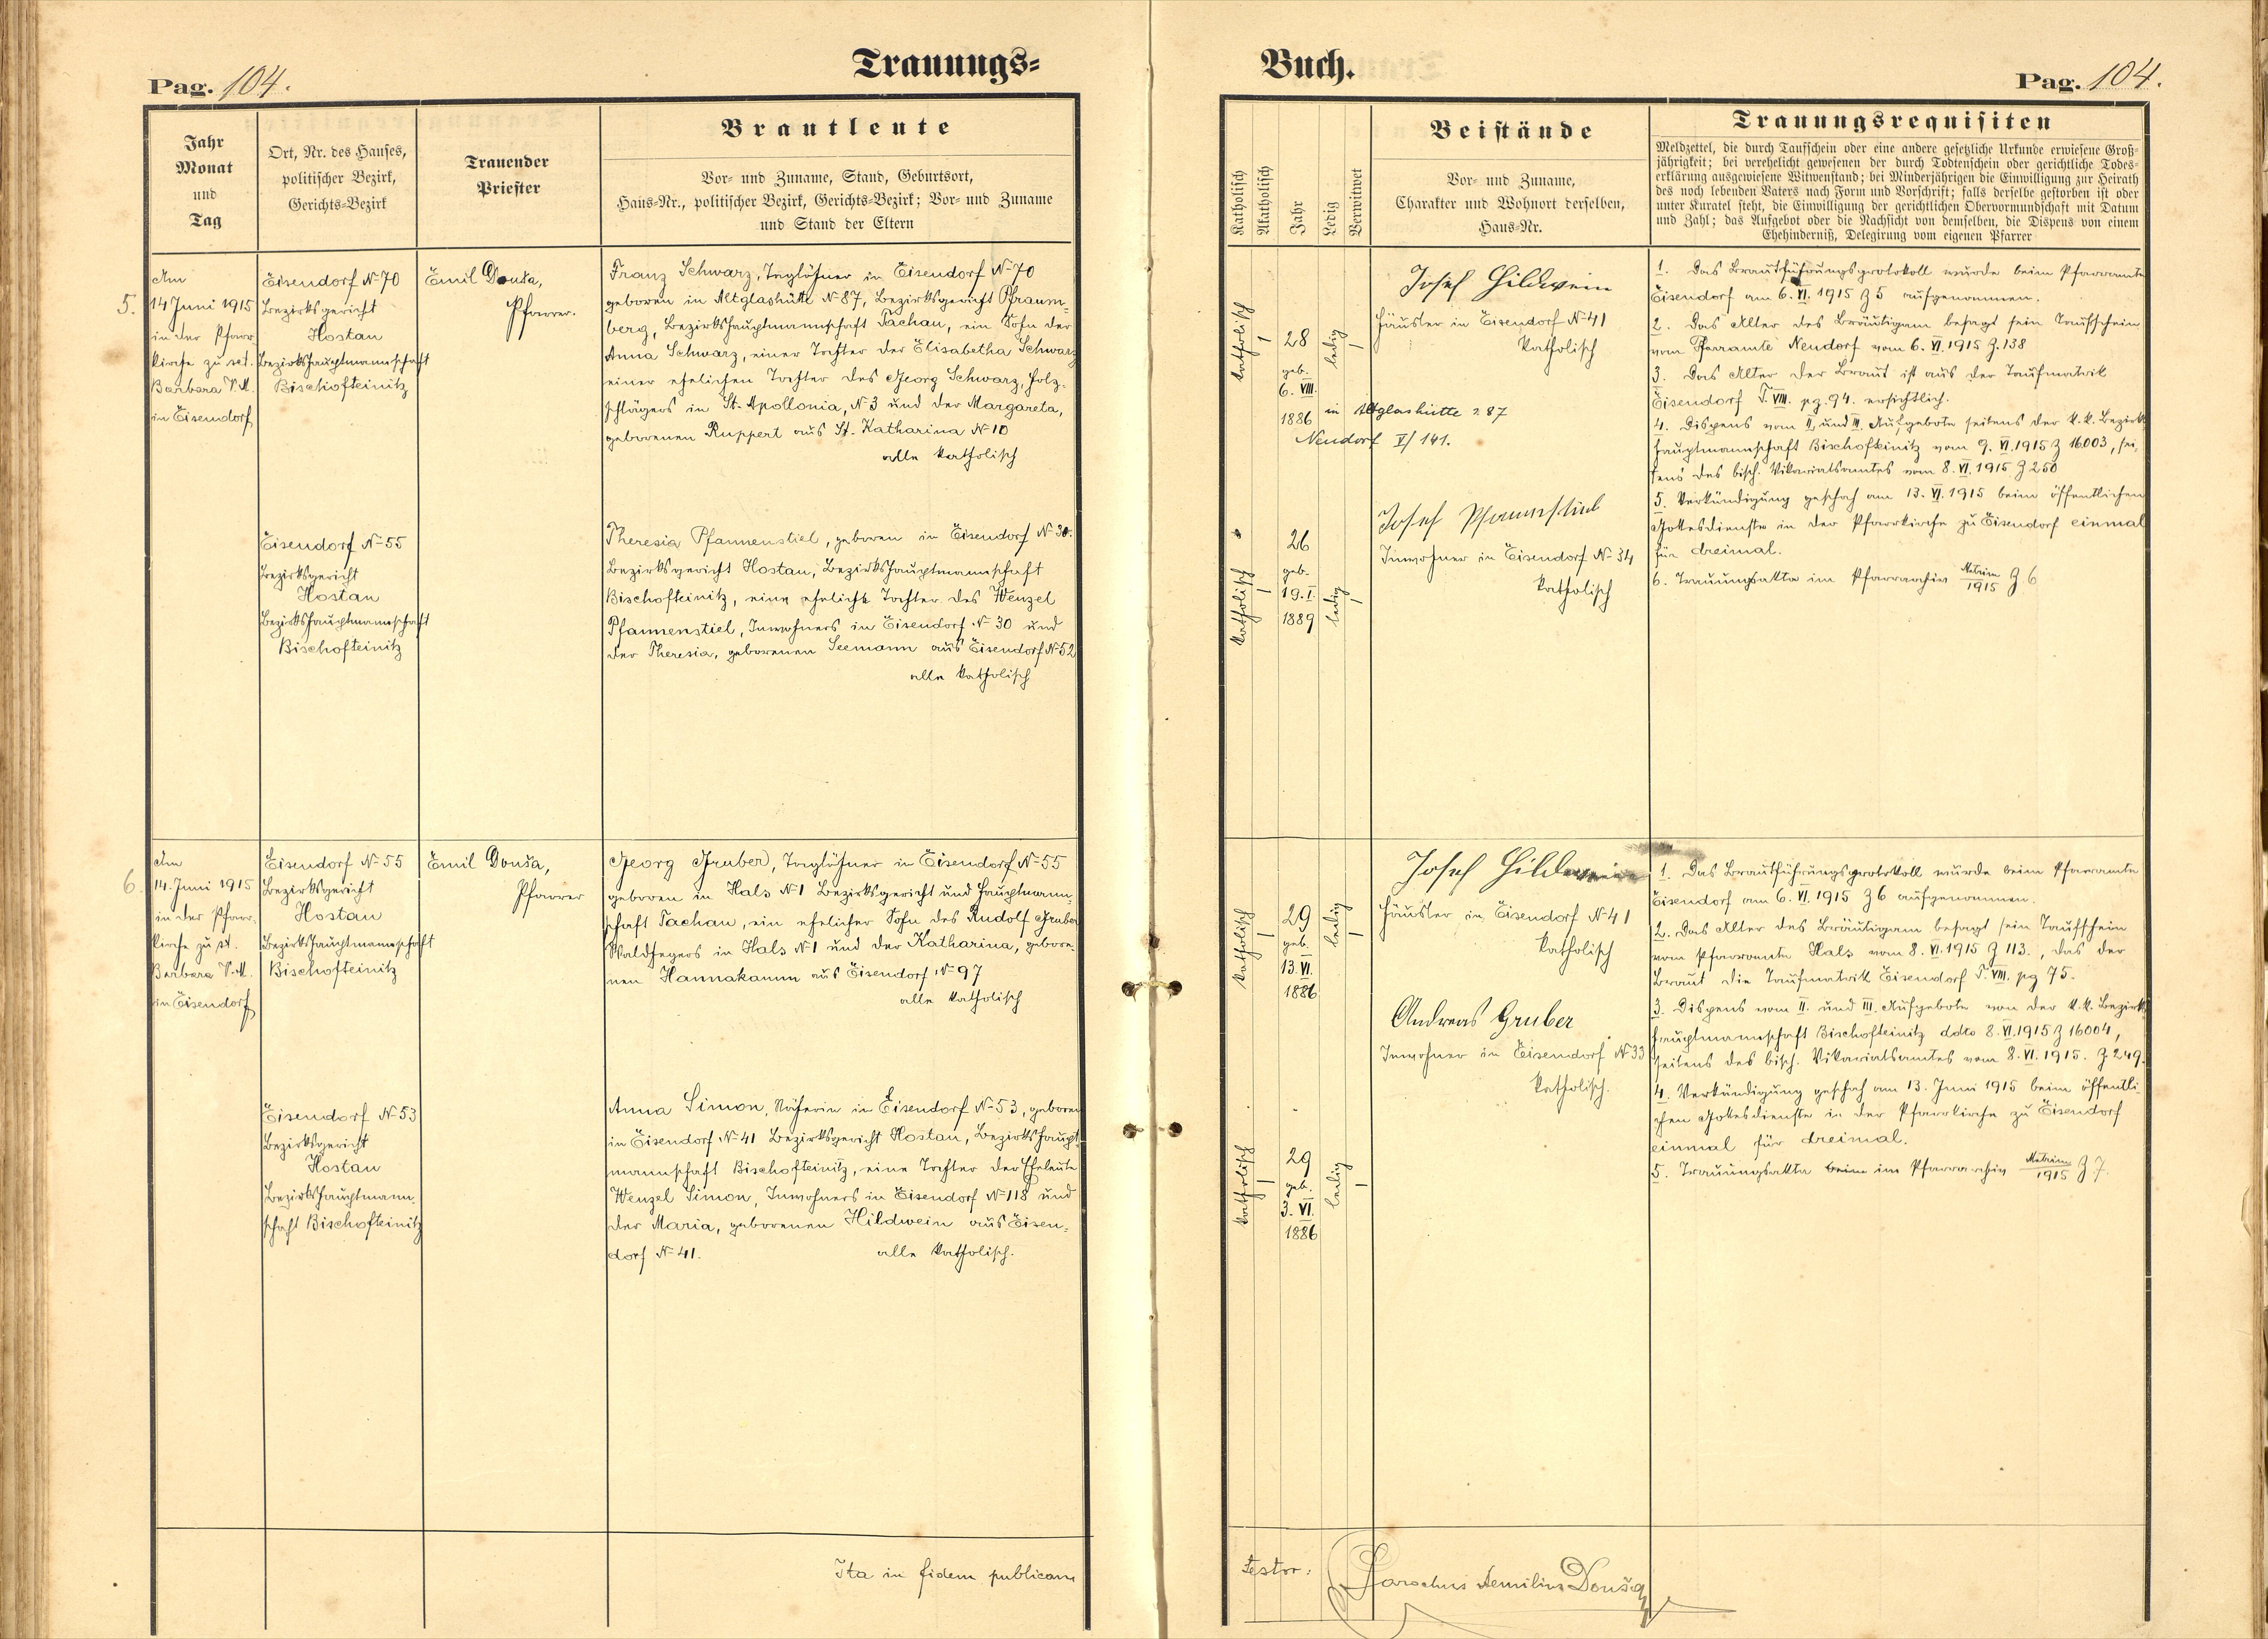 Pag. 104.
Trauungs=
Jahr
Monat
und
Tag
Ort, Nr. des Hauses,
politischer Bezirk,
Gerichts-Bezirk
Trauender
Priester
Brautleute
Vor- und Zuname, Stand, Geburtsort,
Haus-Nr., politischer Bezirk, Gerichts-Bezirk; Vor- und Zuname
und Stand der Eltern
5.
Am
14 Juni 1915
in der Pfarr
kirche zu sct.
Barbara V. M.
in Eisendorf
Eisendorf N-70
Bezirksgericht
Hostau
Bezirkshauptmannschaft
Bischofteinitz
Emil Douša,
Pfarrer.
Franz Schwarz, Taglöhner in Eisendorf N-70
geboren in Altglashütte N-87, Bezirksgericht Pfraum-
berg, Bezirkshauptmannschaft Tachau, ein Sohn der
Anna Schwarz, einer Tochter der Elisabetha Schwarz
einer ehelichen Tochter des Georg Schwarz, Holz-
schlägers in St. Apollonia, N-3 und der Margareta,
geborenen Ruppert aus St. Katharina N-10
alle katholisch
Eisendorf N-55
Bezirksgericht
Hostau
Bezirkshauptmannschaft
Bischofteinitz
Theresia Pfannenstiel, geboren in Eisendorf N-30.
Bezirksgericht Hostau, Bezirkshauptmannschaft
Bischofteinitz, eine eheliche Tochter des Wenzel
Pfannenstiel, Inwohners in Eisendorf N-30 und
der Theresia, geborenen Seemann aus Eisendorf N-52
alle katholisch
6.
Am
14. Juni 1915
in der Pfarr-
kirche zu st.
Barbara V. M.
in Eisendorf
Eisendorf N-55
Bezirksgericht
Hostau
Bezirkshauptmannschaft
Bischofteinitz
Emil Douša,
Pfarrer
Georg Gruber, Taglöhner in Eisendorf N-55
geboren in Hals N-1 Bezirksgericht und Hauptmann-
schaft Tachau, ein ehelicher Sohn des Rudolf Gruber
Waldhegers in Hals N-1 und der Katharina, gebore-
nen Hannakamm aus Eisendorf N-97
alle katholisch
Eisendorf N-53
Bezirksgericht
Hostau
Bezirkshauptmann-
schaft Bischofteinitz
Anna Simon, Näherin in Eisendorf N-53, geboren
in Eisendorf N-41 Bezirksgericht Hostau, Bezirkshaupt-
mannschaft Bischofteinitz, eine Tochter der Eheleute
Wenzel Simon, Inwohners in Eisendorf N-118 und
der Maria, geborenen Hildwein aus Eisen-
dorf N-41. alle katholisch.
Ita in fidem publicam
Buch.
Pag. 104.
Katholisch
Akatholisch
Jahr
Ledig
Verwitwet
Beistände
Vor- und Zuname,
Charakter und Wohnort derselben,
Haus-Nr.
Trauungsrequisiten
Meldzettel, die durch Taufschein oder eine andere gesetzliche Urkunde erwiesene Groß-
jährigkeit; bei verehelicht gewesenen der durch Todtenschein oder gerichtliche Todes-
erklärung ausgewiesene Witwenstand; bei Minderjährigen die Einwilligung zur Heirath
des noch lebenden Vaters nach Form und Vorschrift; falls derselbe gestorben ist oder
unter Kuratel steht, die Einwilligung der gerichtlichen Obervormundschaft mit Datum
und Zahl; das Aufgebot oder die Nachsicht von demselben, die Dispens von einem
Ehehinderniß, Delegirung vom eigenen Pfarrer
katholisch
28
geb.
6. VIII.
1886 in Altglashütte 287
Neudorf V/141.
ledig
Josef Hildwein
Häusler in Eisendorf N-41
katholisch
1. Das Brautführungsprotokoll wurde beim Pfarramte
Eisendorf am 6. VI. 1915 Z 5 aufgenommen.
2. Das Alter des Bräutigam besagt sein Taufschein
vom Pfarramte Neudorf vom 6. VI. 1915 Z. 138
3. Das Alter der Braut ist aus der Taufmatrik
Eisendorf T. VIII. pg. 94. ersichtlich.
4. Dispens vom II. und III. Aufgebote seitens der k. k. Bezirks
hauptmannschaft Bischofteinitz vom 9. VI. 1915 Z 16003, sei-
tens des bisch. Vikariatsamtes vom 8. VI. 1915 Z 250
5. Verkündigung geschah am 13. VI. 1915 beim öffentlichen
Gottesdienste in der Pfarrkirche zu Eisendorf einmal
für dreimal.
6. Trauungsakta im Pfarrarchiv Matrim/1915 Z 6
katholisch
26
geb.
19. I.
1889
ledig
Josef Pfannstiel
Inwohner in Eisendorf N-34
katholisch
katholisch
29
geb.
13. VI.
1886
ledig
Josef Hildwein
Häusler in Eisendorf N-41
katholisch
Andreas Gruber
Inwohner in Eisendorf N 33
katholisch.
1. Das Brautführungsprotokoll wurde beim Pfarramte
Eisendorf am 6. VI. 1915 Z 6 aufgenommen.
2. Das Alter des Bräutigam besagt sein Taufschein
vom Pfarramte Hals vom 8. VI. 1915 Z 113., das der
Braut die Taufmatrik Eisendorf T. VIII. pg 75.
3. Dispens vom II. und III. Aufgebote von der k. k. Bezirks
hauptmannschaft Bischofteinitz ddto 8. VI. 1915 Z 16004,
seitens des bisch. Vikariatsamtes vom 8. VI. 1915. Z. 249.
4. Verkündigung geschah am 13. Juni 1915 beim öffentli-
chen Gottesdienste in der Pfarrkirche zu Eisendorf
einmal für dreimal.
5. Trauungsakta beim im Pfarrarchiv Matrim/1915 Z 7.
katholisch
29
geb.
3. VI.
1886
ledig
Testor:
Parochus Aemilius Douša